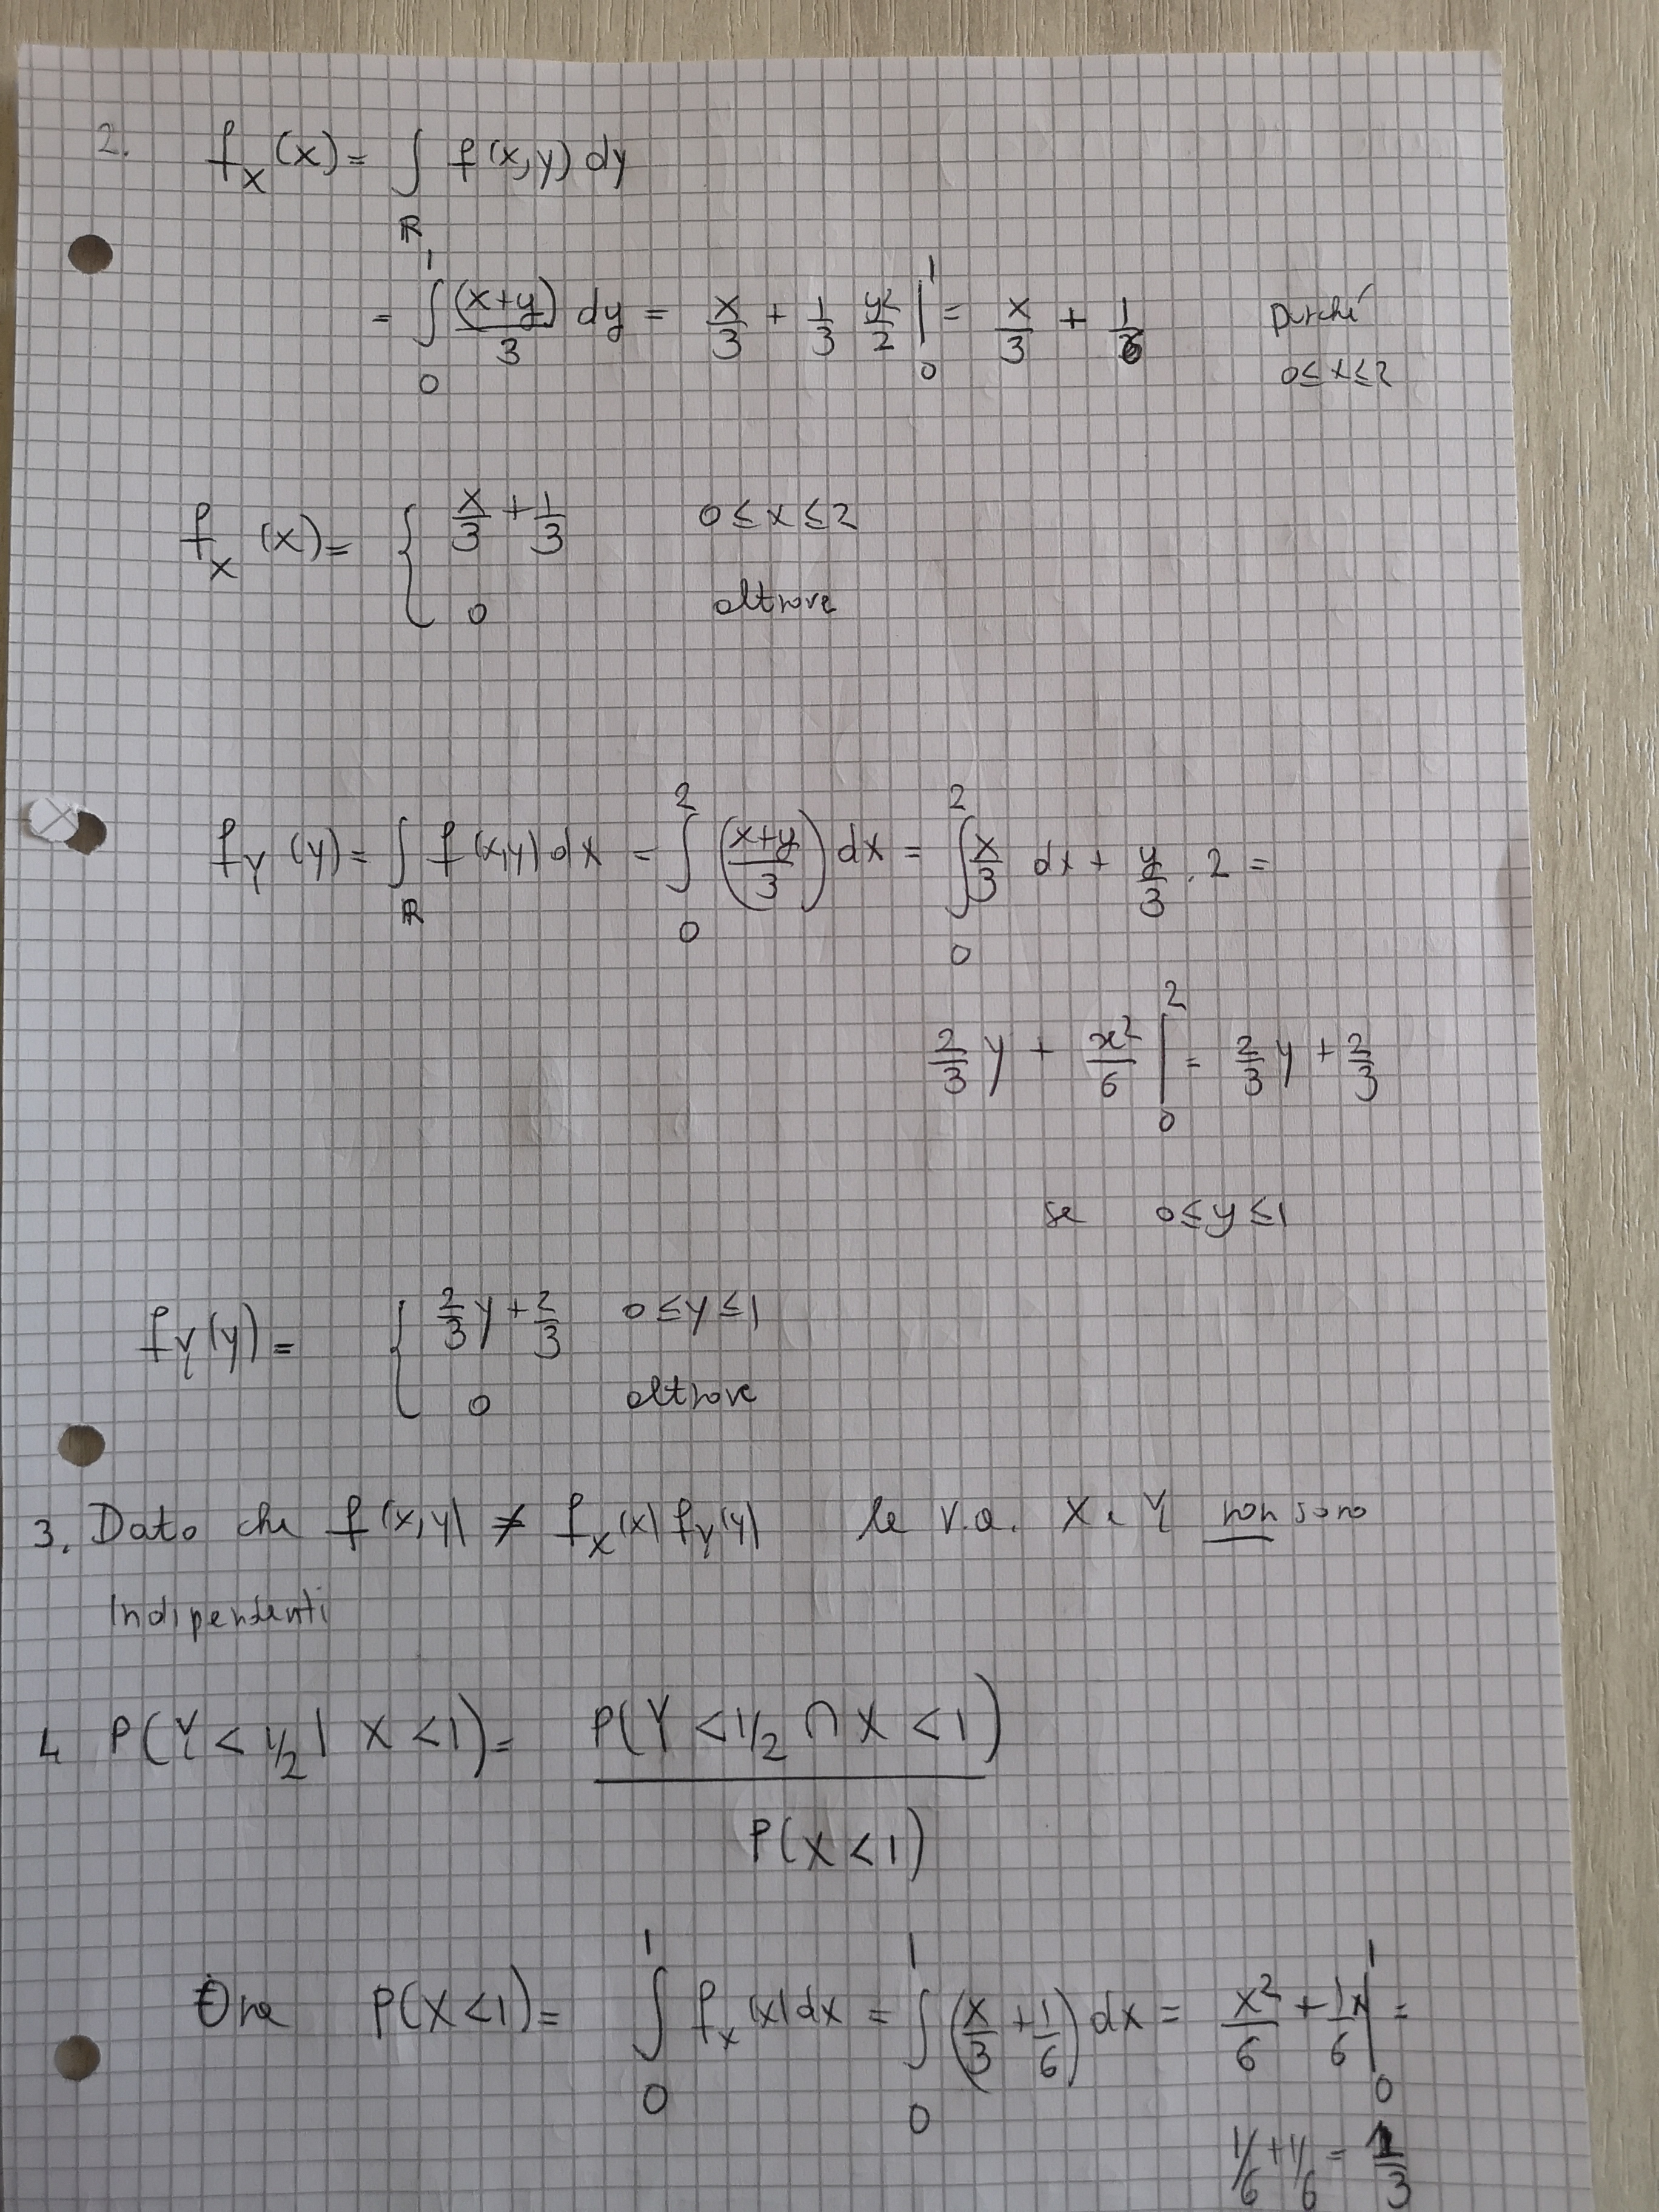 2. f_X(x) = ∫_ℝ f(x,y) dy
= ∫_0^1 (x+y)/3 dy = x/3 + 1/3 y²/2 |_0^1 = x/3 + 1/6 purché
0≤x≤2
f_X(x) = { x/3 + 1/3 0≤x≤2
0 altrove
f_Y(y) = ∫_ℝ f(x,y) dx = ∫_0^2 ((x+y)/3) dx = ∫_0^2 x/3 dx + y/3 . 2 =
2/3 y + x²/6 |_0^2 = 2/3 y + 2/3
se 0≤y≤1
f_Y(y) = { 2/3 y + 2/3 0≤y≤1
0 altrove
3. Dato che f(x,y) ≠ f_X(x) f_Y(y) le v.a. X e Y non sono
Indipendenti
4 P(Y < 1/2 | X < 1) = P(Y < 1/2 ∩ X < 1)
P(X < 1)
Ora P(X<1) = ∫_0^1 f_X(x) dx = ∫_0^1 (x/3 + 1/6) dx = x²/6 + 1/6 x |_0^1 =
1/6 + 1/6 = 1/3